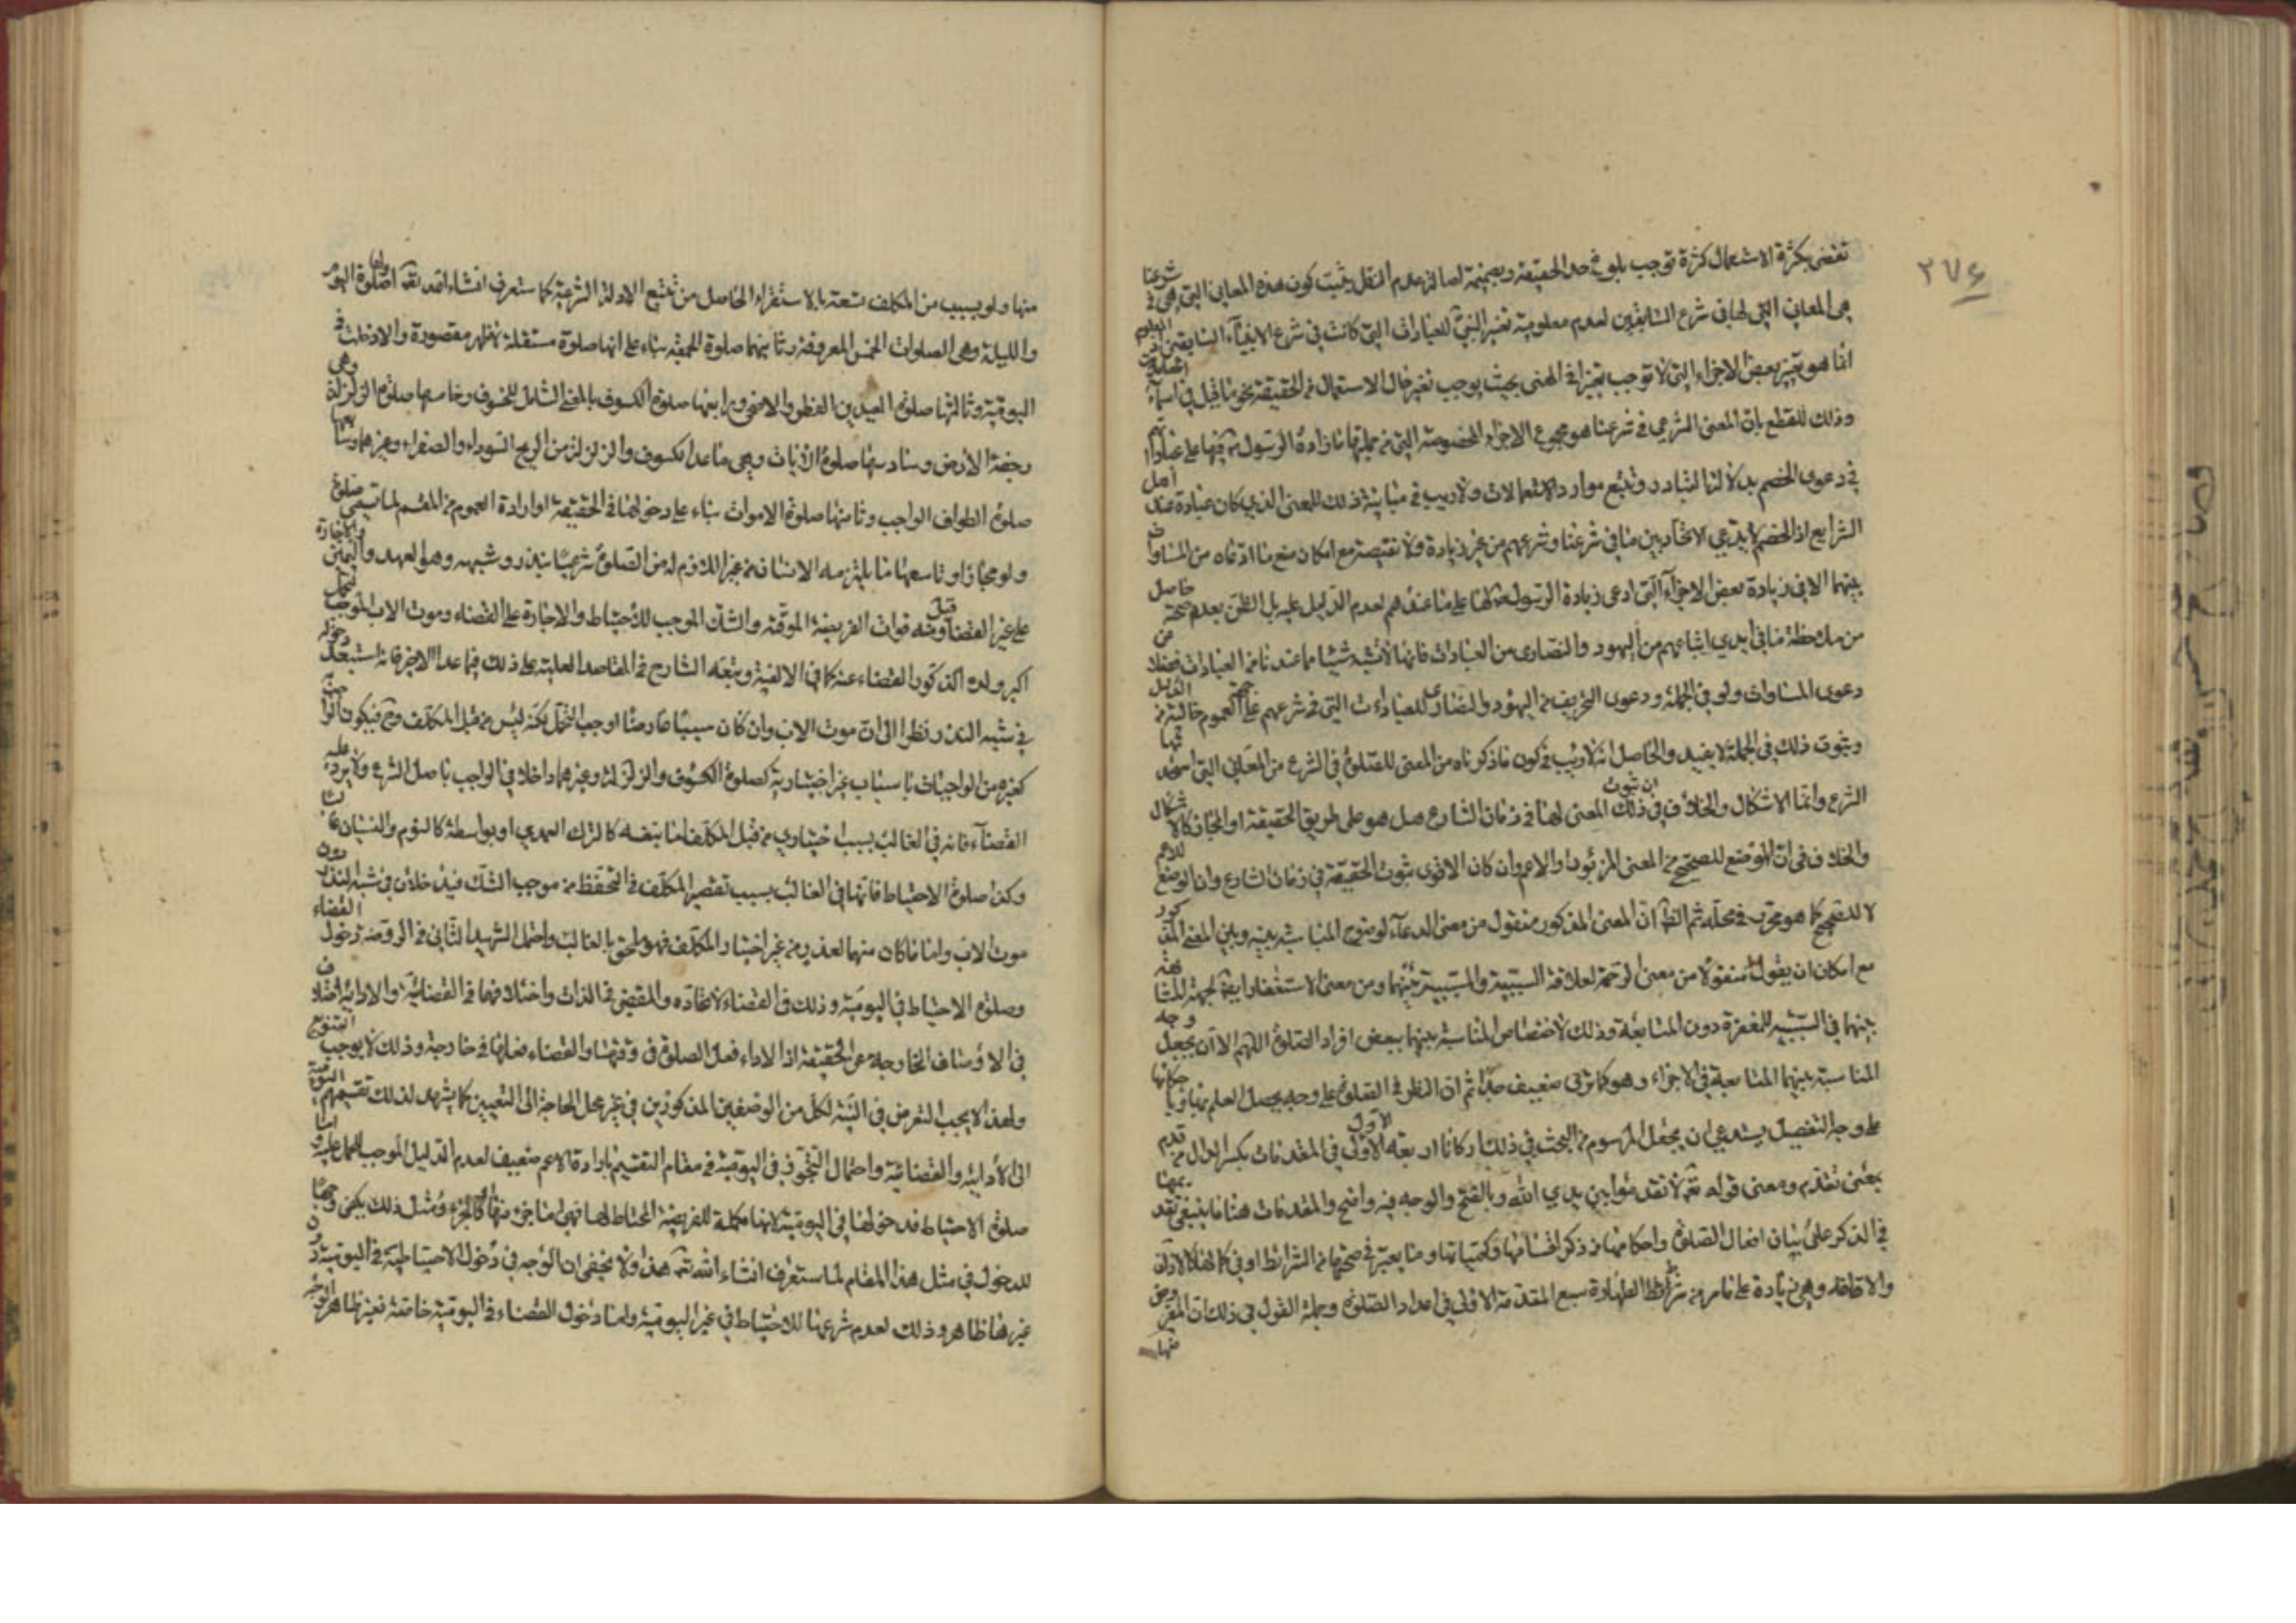 ٢٧٤
تقضى بكثرة الاستعمال كثرة توجب بلوغه حد الحقيقة وبضميمة اصالة عدم النقل يثبت كون هذه المعاني التي هي في شرعنا
هى المعاني التي لها في شرع السابقين لعدم معلومية تغير النبي للعبادات التي كانت في شرع الانبياء السابقين
انما هو بتغيير بعض الاجزاء التي لا توجب تغيرا في المعنى بحيث يوجب تغير حال الاستعمال في الحقيقة نحو ما قيل في اسماء
وذلك للقطع بان المعنى الشرعي في شرعنا هو مجموع الاجزاء المخصوصة التي من جملتها ما زاده الرسول فيها على
في دعوى الخصم بدلالة التبادر وتتبع موارد الاستعمالات ولا ريب في مباينة ذلك للمعنى الذي كان عبادة عند اهل
الشرايع اذ الخصم لا يدعي الاتحاد بين ما في شرعنا وشرعهم من غير زيادة ولا نقيصة مع امكان منع ما ادعاه من المساواة
بينهما الا في زيادة بعض الاجزاء التي ادعى زيادة الرسول لها على ما عندهم لعدم الدليل عليه بل الظن بعدم صحته حاصل
من ملاحظة ما في ايدي اتباعهم من اليهود والنصارى من العبادات فانها لا تشبه شيئا مما عندنا من العبادات
دعوى المساوات ولو في الجملة ودعوى التحريف من اليهود والنصارى للعبادات التي في شرعهم على العموم خالية من
وثبوت ذلك في الجملة لا يفيد والحاصل انه لا ريب في كون ما ذكرناه من المعنى للصلوة في الشرع من المعاني التي
الشرع وانما الاشكال والخلاف في ان ثبوت ذلك المعنى لها في زمان الشارع هل هو على طريق الحقيقة او المجاز كالاشكال
والخلاف في ان الوضع للصحيح من المعنى المزبور او الاعم وان كان الاقوى ثبوت الحقيقة في زمان الشارع وان الوضع للاعم
لا للصحيح كما هو محرر في محله ثم الظ ان المعنى المذكور منقول من معنى الدعاء لوضوح المناسبة بينه وبين المعنى المذكور
مع امكان ان يقول منقولا من معنى الرحمة لعلاقة السببية والمسببية بينهما ومن معنى الاستغفار ايضا لجهة المشابهة
بينهما في السببية للمغفرة دون المتابعة وذلك لاختصاص المناسبة بينهما ببعض افراد الصلوة اللهم الا ان يجعل وجه
المناسبة بينهما المتابعة في الاجزاء وهو كما ترى ضعيف جدا ثم ان النظر في الصلوة على وجه يحصل العلم بها
على وجه التفصيل يستدعي ان يجعل المرسوم في البحث في ذلك اركانا اربعة الاول في المقدمات بكسر الدال من قدم
بمعنى تقدم ومعنى قوله تعم لا تقدموا بين يدي الله وبالفتح والوجه فيه واضح والمقدمات هنا ما ينبغي تقديمها
في الذكر على بيان افعال الصلوة واحكامها من ذكر اقسامها وكمياتها وما يعتبر في صحتها من الشرائط او في كمالها كالاذان
والاقامة وهى زيادة على ما مر من شرائط الطهارة سبع المقدمة الاولى في اعداد الصلوة وجملة القول في ذلك ان المفروض
منها
منها ولو بسبب من المكلف تسعة بالاستقراء الحاصل من تتبع الادلة الشرعية كما ستعرف انشاء الله تعم اولها صلوة اليوم
والليلة وهى الصلوات الخمس المعروفة وثانيها صلوة الجمعة بناء على انها صلوة مستقلة لا ظهر مقصورة والا دخلت في
اليومية وثالثها صلوة العيدين الفطر والاضحى ورابعها صلوة الكسوف بالمعنى الشامل للخسوف وخامسها صلوة الزلزلة وهى
رجفة الارض وسادسها صلوة الايات وهى ما عدا الكسوف والزلزلة من الريح السوداء والصفراء وغيرهما وسابعها
صلوة الطواف الواجب وثامنها صلوة الاموات بناء على دخولها في الحقيقة او ارادة العموم من المقسم لما تسمى صلوة
ولو مجازا وتاسعها ما يلتزمه الانسان من غير اللازم له من الصلوة شرعيا بنذر وشبهه وهو العهد واليمين والاجارة
على غير القضاء وقبل وشبه فوات الفريضة الموقتة والشك الموجب للاحتياط والاجارة على القضاء وموت الاب الموجب لتحمل
اكبر ولده الذكور القضاء عنه كما في الالفية وتبعه الشارح في المقاصد العلية على ذلك فيما عدا الاخير فانه استبعد دخوله
في شبه النذر ونظر الى ان موت الاب وان كان سببا عارضا اوجب التحمل لكنه ليس من قبل المكلف وح فيكون
كغيره من الواجبات باسباب غير اختيارية كصلوة الكسوف والزلزلة وغيرهما داخلا في الواجب باصل الشرع ولا يرد عليه
القضاء فانه في الغالب بسبب اختياري من قبل المكلف اما بنفسه كالترك العمدي او بواسطة كالنوم والنسيان
وكذا صلوة الاحتياط فانها في الغالب بسبب تقصير المكلف في التحفظ من موجب الشك فيدخلان في شبه النذر دون
موت الاب واما ما كان منهما لعذر من غير اختيار المكلف فهو ملحق بالغالب واحتمل الشهيد الثاني في الروضة دخول القضاء
وصلوة الاحتياط في اليومية وذلك في القضاء لاتحاده والمقضي في الذات واختلافهما في القضائية والادائية اختلاف
في الاوصاف الخارجة عن الحقيقة اذ الاداء فعل الصلوة في وقتها والقضاء فعلها في خارجه وذلك لا يوجب التنويع
ولهذا لا يجب التعرض في النية لكل من الوصفين المذكورين في غير محل الحاجة الى التعيين كما يشهد لذلك تقسيمهم اليومية
الى الادائية والقضائية واحتمال التجوز في اليومية في مقام التقسيم بارادة الاعم ضعيف لعدم الدليل الموجب للحمل عليه واما
صلوة الاحتياط فدخولها في اليومية لانها مكملة للفريضة المحتاط لها فهى اما جزء منها او كالجزء ومثل ذلك يكفى وجها
للدخول في مثل هذا المقام لما ستعرف انشاء الله تعم هذا ولا يخفى ان الوجه في دخول الاحتياطية في اليومية دون
غيرها ظاهر وذلك لعدم شرعنا للاحتياط في غير اليومية واما دخول القضاء في اليومية خاصة فغير ظاهر الوجه